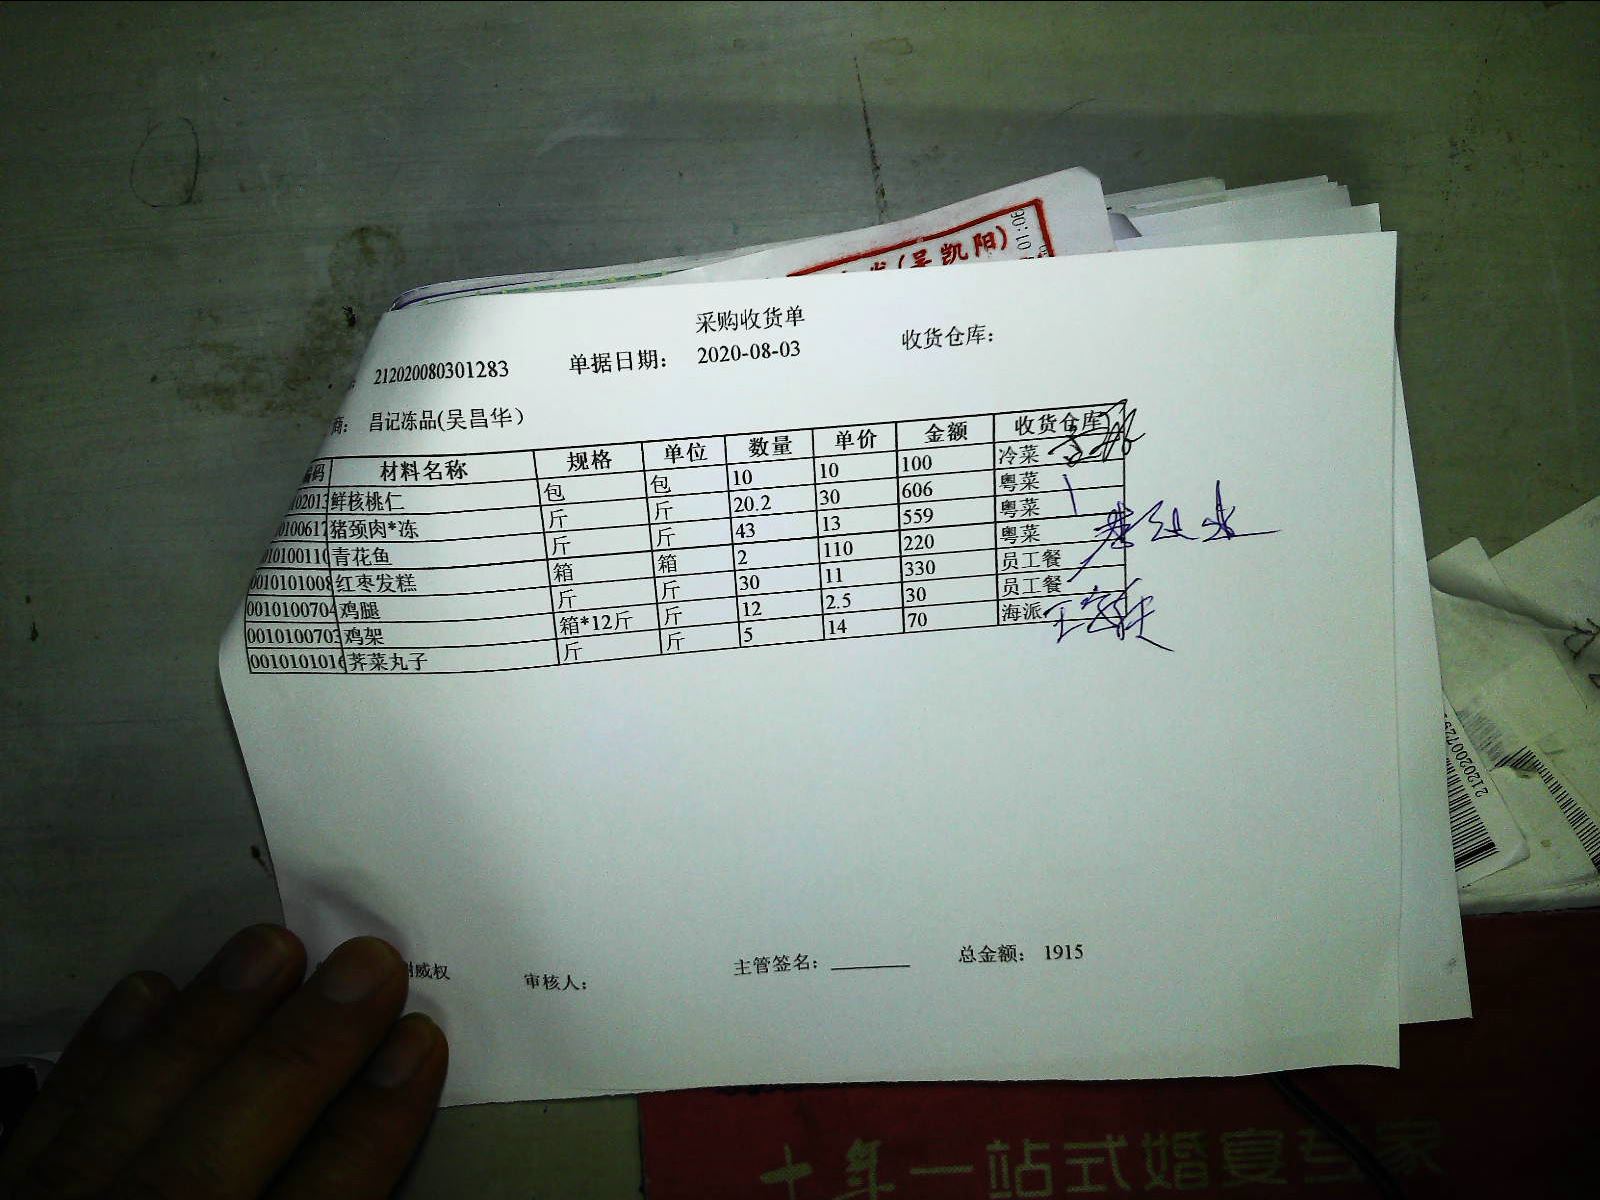 (吴凯阳)
采购收货单
212020080301283 单据日期: 2020-08-03 收货仓库:
商: 昌记冻品(吴昌华)
编码 材料名称 规格 单位 数量 单价 金额 收货仓库
鲜核桃仁 包 包 10 10 100 冷菜
猪颈肉*冻 斤 斤 20.2 30 606 粤菜
青花鱼 斤 斤 43 13 559 粤菜
红枣发糕 箱 箱 2 110 220 粤菜
0010100704 鸡腿 斤 斤 30 11 330 员工餐
0010100703 鸡架 箱*12斤 斤 12 2.5 30 员工餐
001010101 荠菜丸子 斤 斤 5 14 70 海派
威权 审核人: 主管签名: 总金额: 1915
十年一站式婚宴专家